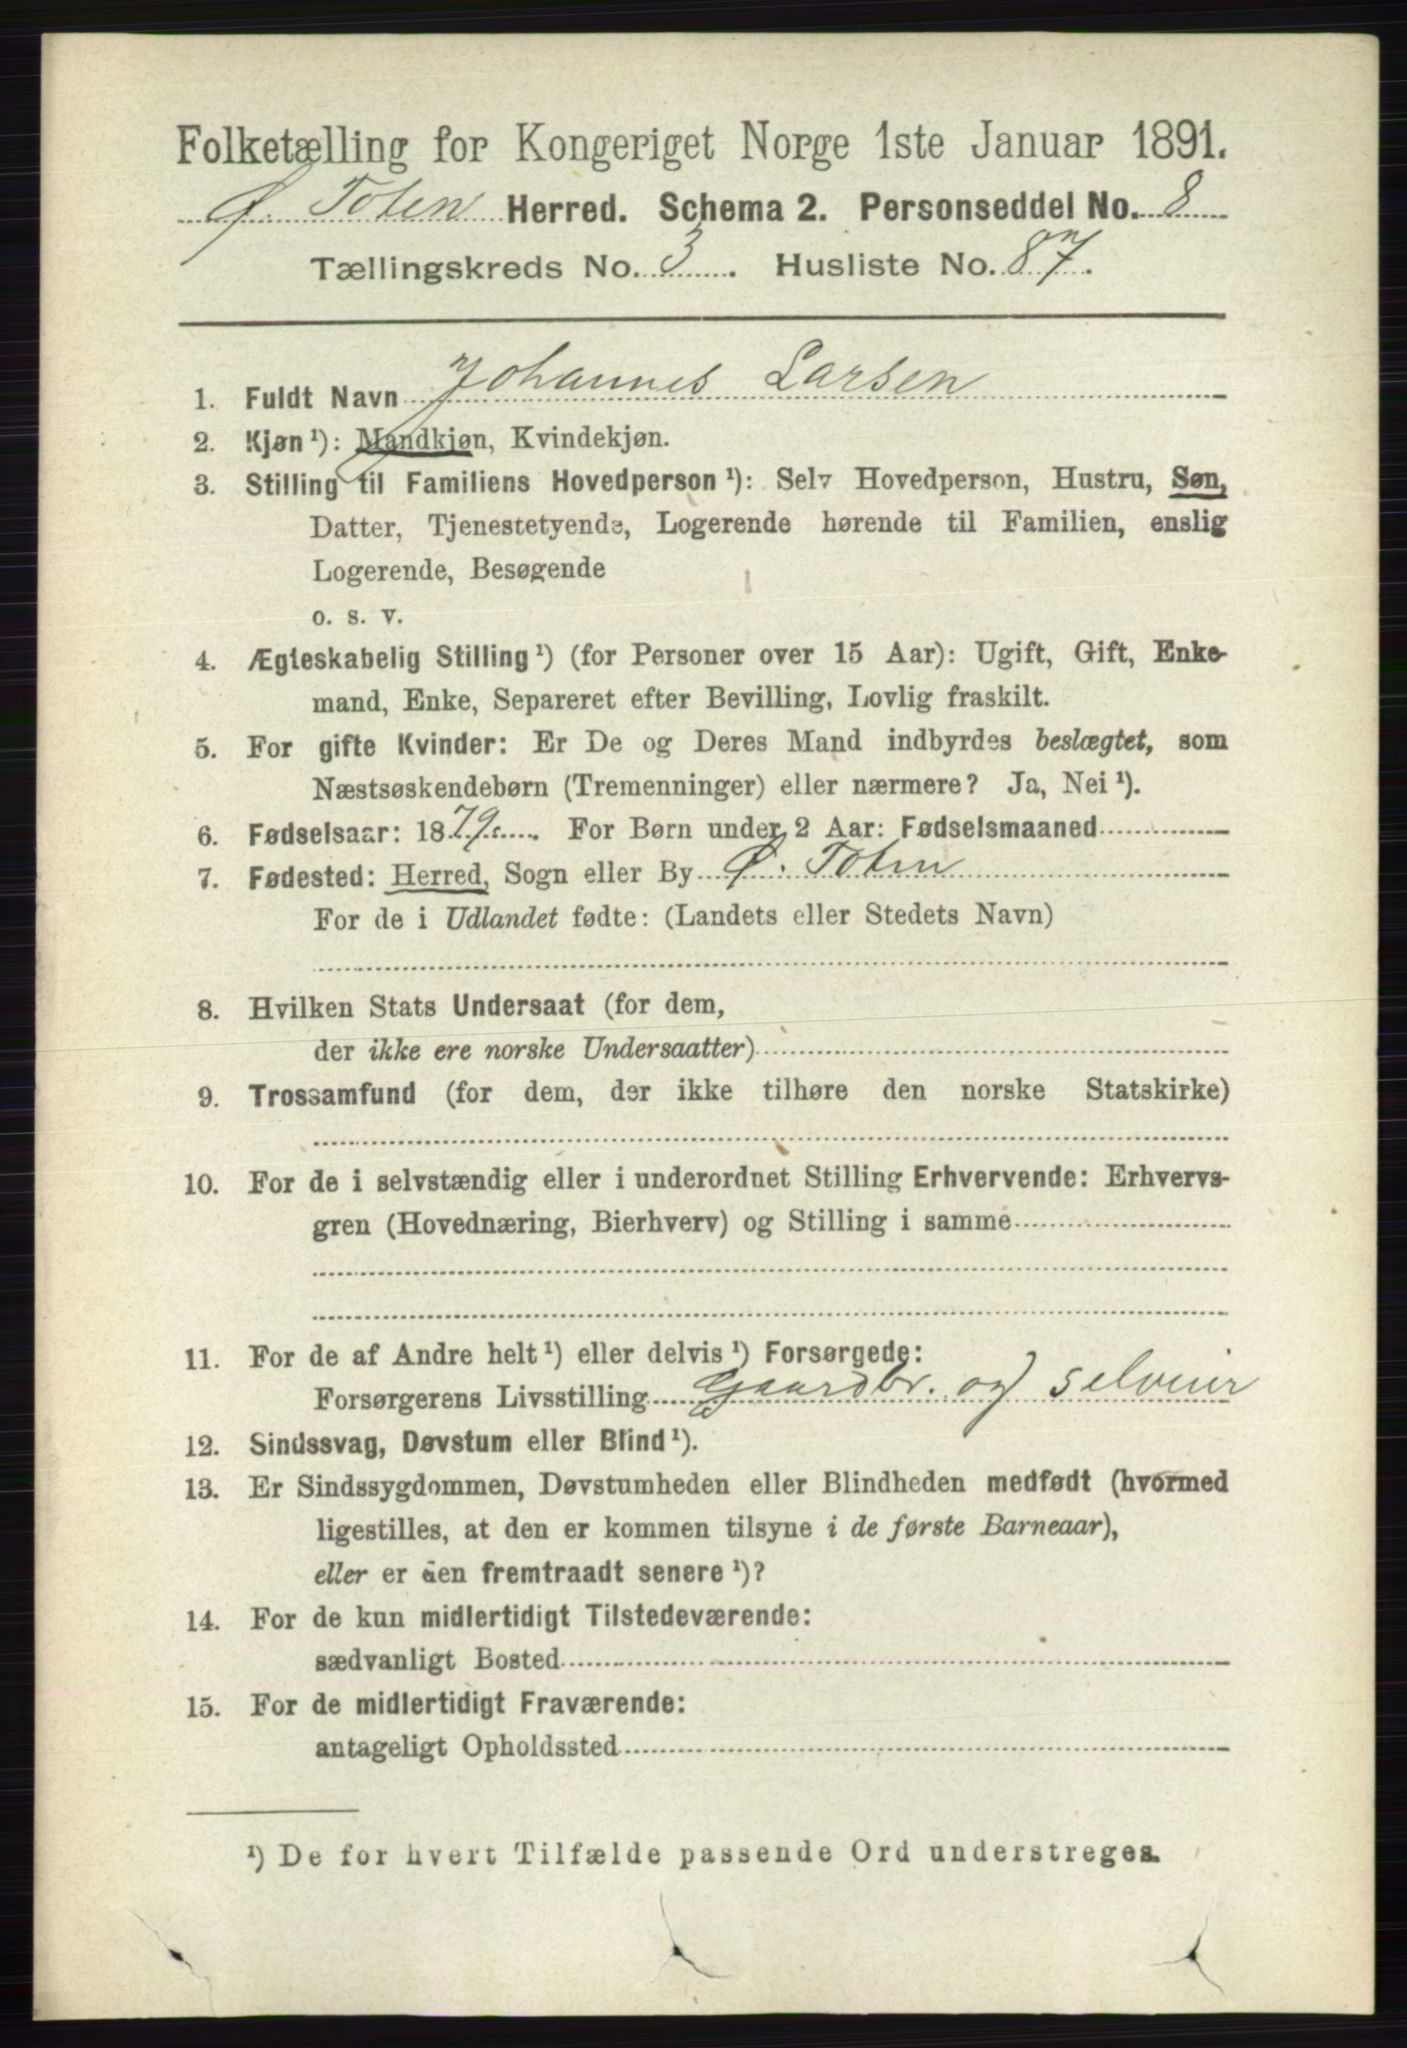 Folketælling for Kongeriget Norge 1ste Januar 1891.
Ø. Toten Herred. Schema 2. Personseddel No. 8
Tællingskreds No. 3. Husliste No. 87.
1. Fuldt Navn Johannes Larsen
2. Kjøn¹): Mandkjøn, Kvindekjøn.
3. Stilling til Familiens Hovedperson¹): Selv Hovedperson, Hustru, Søn,
Datter, Tjenestetyende, Logerende hørende til Familien, enslig
Logerende, Besøgende
o. s. v.
4. Ægteskabelig Stilling¹) (for Personer over 15 Aar): Ugift, Gift, Enke-
mand, Enke, Separeret efter Bevilling, Lovlig fraskilt.
5. For gifte Kvinder: Er De og Deres Mand indbyrdes beslægtet, som
Næstsøskendebørn (Tremenninger) eller nærmere? Ja, Nei¹).
6. Fødselsaar: 1879. For Børn under 2 Aar: Fødselsmaaned
7. Fødested: Herred, Sogn eller By Ø. Toten
For de i Udlandet fødte: (Landets eller Stedets Navn)
8. Hvilken Stats Undersaat (for dem,
der ikke ere norske Undersaatter)
9. Trossamfund (for dem, der ikke tilhøre den norske Statskirke)
10. For de i selvstændig eller i underordnet Stilling Erhvervende: Erhvervs-
gren (Hovednæring, Bierhverv) og Stilling i samme
11. For de af Andre helt¹) eller delvis¹) Forsørgede:
Forsørgerens Livsstilling Gaardbr. og selveier
12. Sindssvag, Døvstum eller Blind¹).
13. Er Sindssygdommen, Døvstumheden eller Blindheden medfødt (hvormed
ligestilles, at den er kommen tilsyne i de første Barneaar),
eller er den fremtraadt senere¹)?
14. For de kun midlertidigt Tilstedeværende:
sædvanligt Bosted
15. For de midlertidigt Fraværende:
antageligt Opholdssted
¹) De for hvert Tilfælde passende Ord understreges.